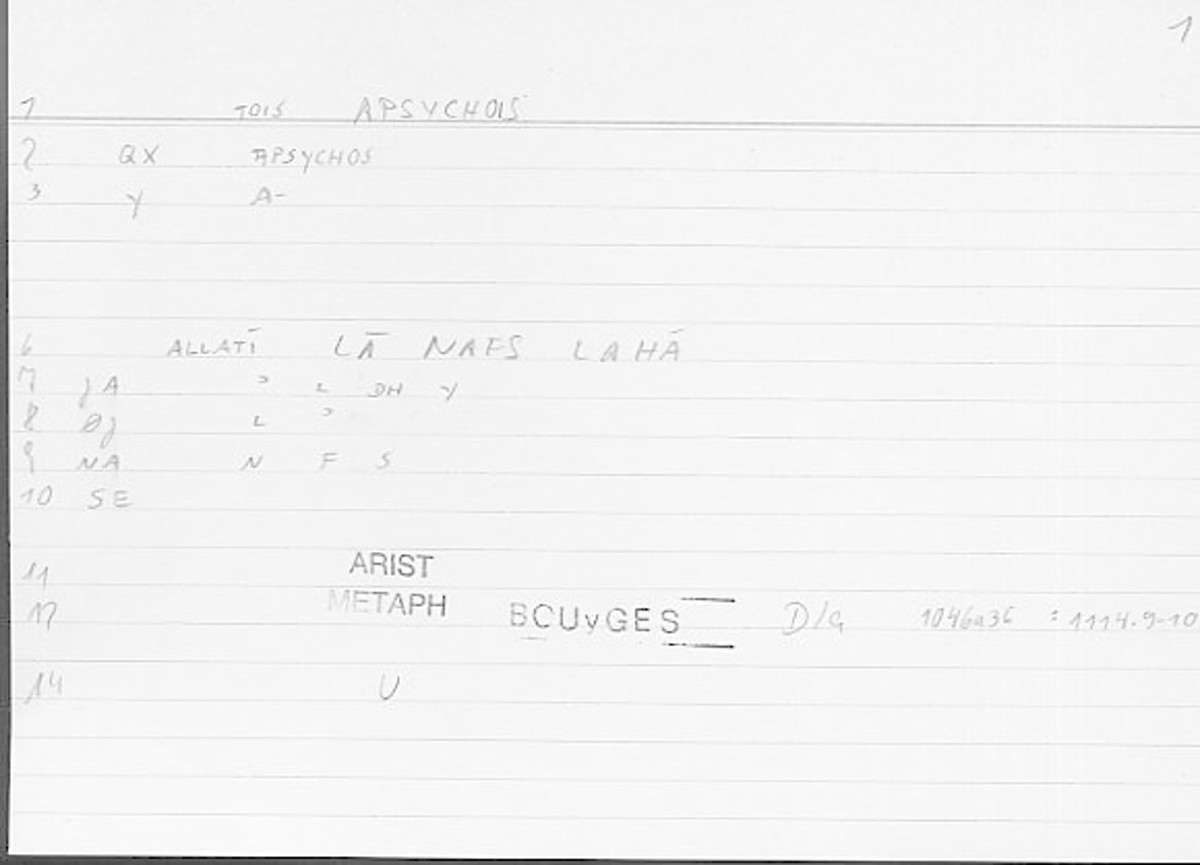 1
1 TOIS APSYCHOIS
2 QX APSYCHOS
3 Y A-
6 ALLATĪ LĀ NAFS LAHĀ
7 JA ʾ L DH Y
8 ØJ L ʾ
9 NA N F S
10 SE
11 ARIST
12 METAPH BCUyGES D/G 1046a36 : 1114.9-10
14 U